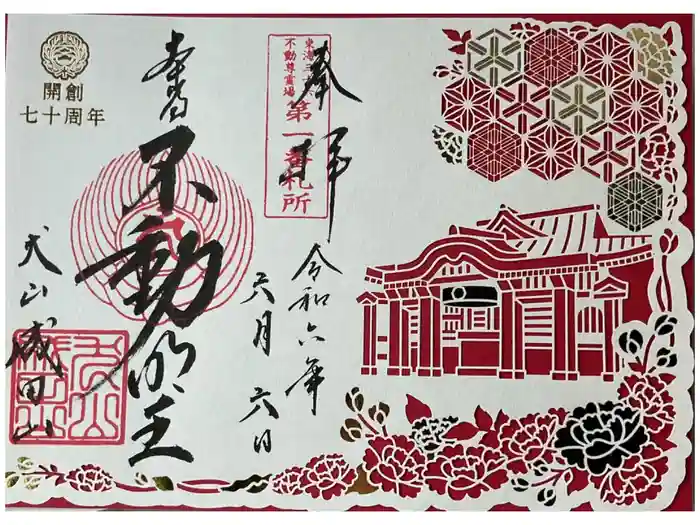 奉拝
東海三十六
不動尊霊場
第一番札所
令和六年
六月六日
不動明王
犬山成田山
開創
七十周年